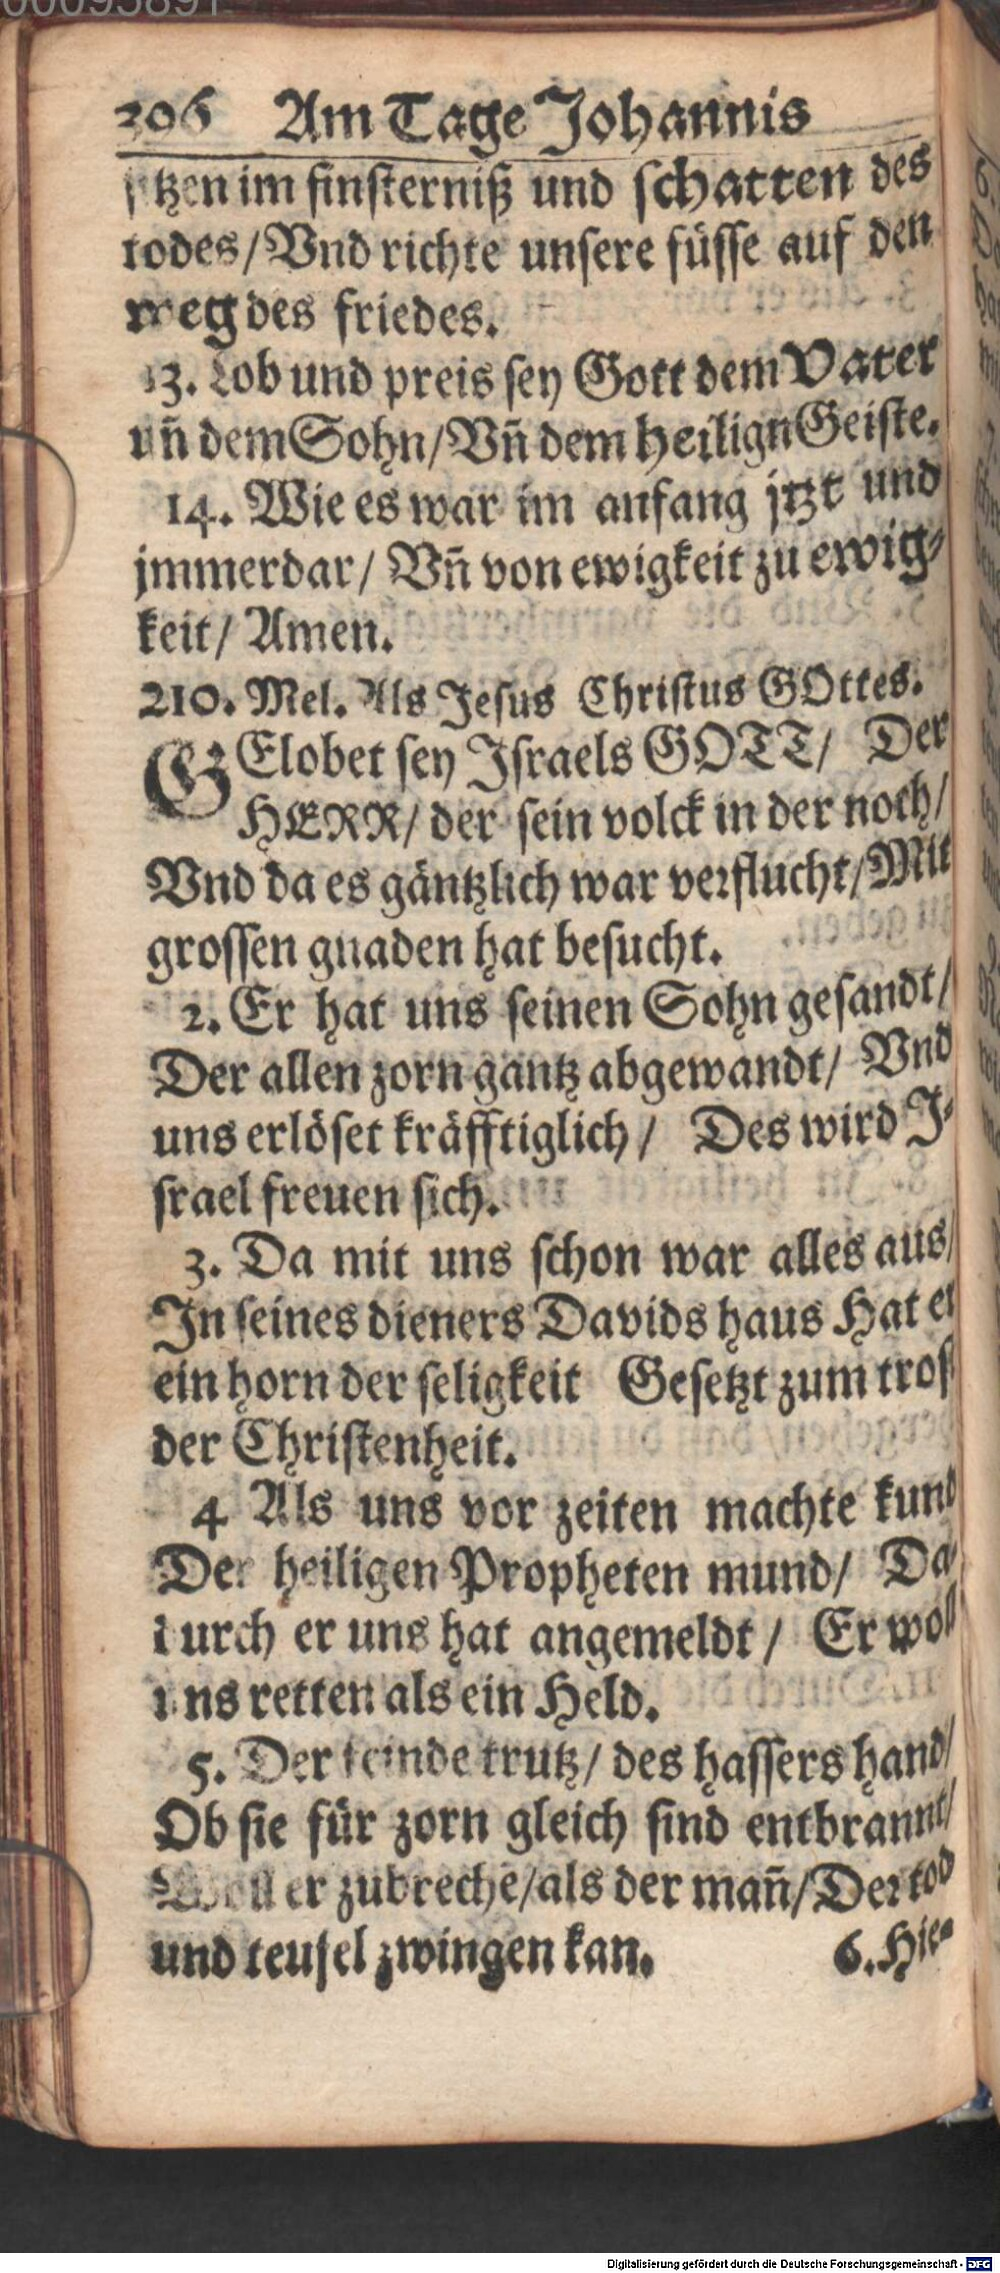 00095891
306 Am Tage Johannis
sitzen im finsterniß und schatten des
todes/Vnd richte unsere füsse auf den
weg des friedes.
13. Lob und preis sey Gott dem Vater
uñ dem Sohn/Vñ dem heilign Geiste.
14. Wie es war im anfang jtzt und
jmmerdar/ Vñ von ewigkeit zu ewig-
keit/ Amen.
210. Mel. Als Jesus Christus GOttes.
GElobet sey Israels GOTT/ Der
HERR/ der sein volck in der noth/
Vnd da es gäntzlich war verflucht/Mit
grossen gnaden hat besucht.
2. Er hat uns seinen Sohn gesandt/
Der allen zorn gantz abgewandt/ Vnd
uns erlöset kräfftiglich/ Des wird J-
srael freuen sich.
3. Da mit uns schon war alles aus/
In seines dieners Davids haus Hat er
ein horn der seligkeit Gesetzt zum trost
der Christenheit.
4 Als uns vor zeiten machte kund
Der heiligen Propheten mund/ Da-
durch er uns hat angemeldt/ Er woll
uns retten als ein Held.
5. Der feinde trutz/ des hassers hand/
Ob sie für zorn gleich sind entbrannt/
Woll er zubreche/als der mañ/Der tod
und teufel zwingen kan. 6. Hie-
Digitalisierung gefördert durch die Deutsche Forschungsgemeinschaft - DFG